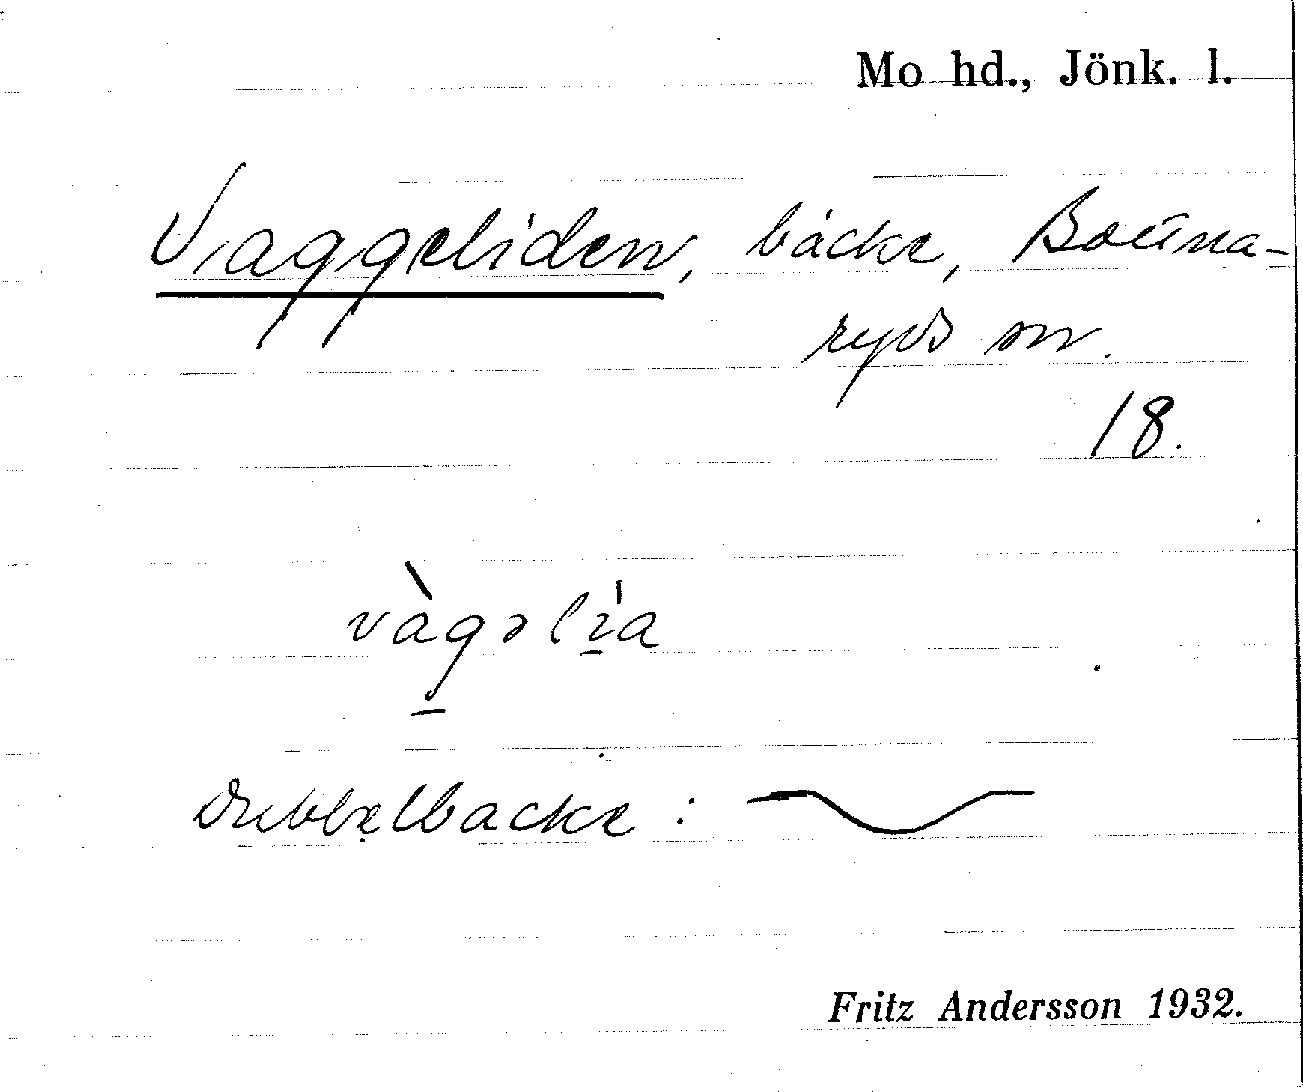 Mo hd., Jönk. l.
Vaggeliden, backe, Bottna-
ryds sn.
18.
vàgəlìa
dubbelbacke :
Fritz Andersson 1932.